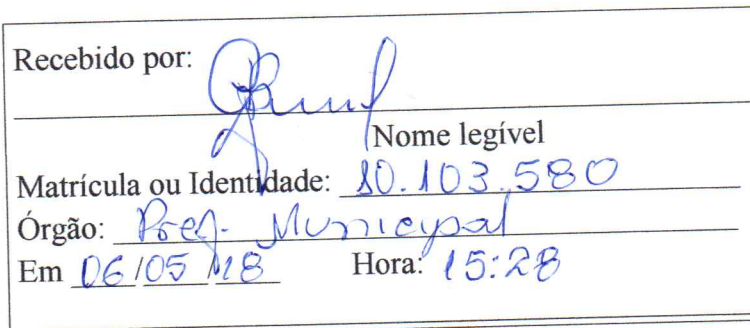 Recebido por:
Nome legível
Matrícula ou Identidade: 10.103.580
Órgão: Pref. Municipal
Em 06/05/18 Hora: 15:28